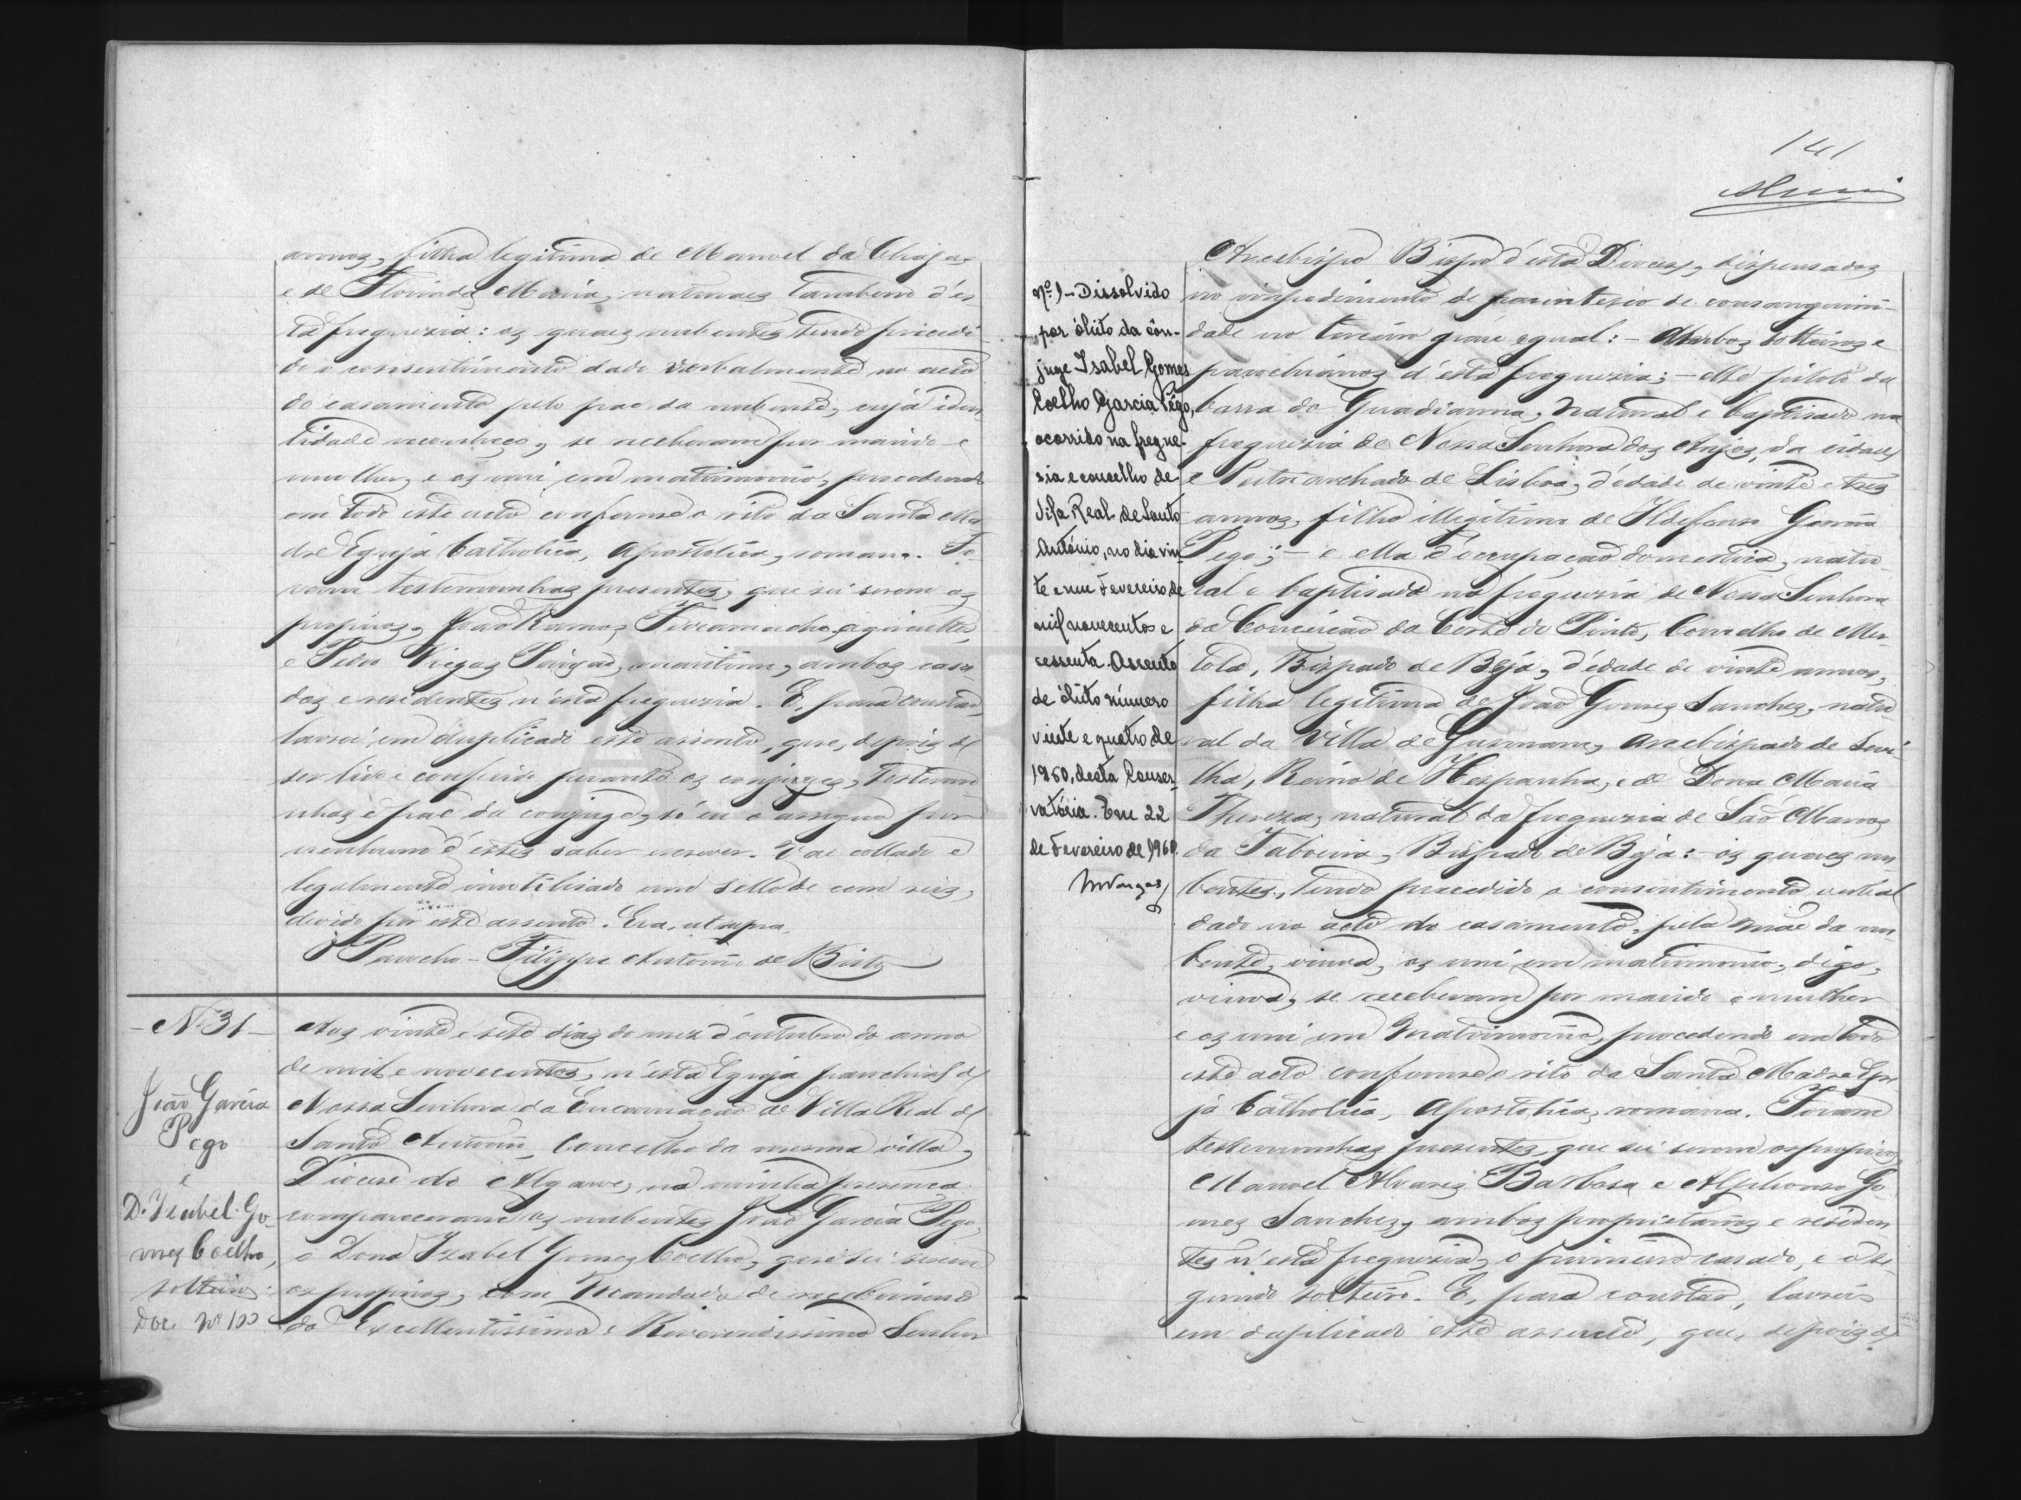 annos, filha legitima de Manoel da Chaga
e de Florinda Maria, naturaes tambem d'es
ta freguezia: os quaes nubentes tendo precedi
do o consentimento dado verbalmente no acto
do casamento pelo pae da nubente, cuja iden
tidade reconheço, se receberam por marido e
mulher, e os uni em matrimonio, procedendo
em todo este acto conforme o rito da Santa Ma
dre Egreja Catholica, Apostolica, romana. Fo
ram testemunhas presentes, que sei serem os
proprios, João Ramos, agricultor,
e Pedro Viegas, maritimo, ambos casa
dos e residentes n'esta freguezia. E, para constar,
lavrei em duplicado este assento, que, depois de
ser lido e conferido perante os conjuges, testemu
nhas e pae da conjuge, só eu o assigno por
nenhum d'estes saber escrever. Vae collado e
legalmente inutilisado um sello de cem reis,
devido por este assento. Era, ut supra.
O Parocho - Filippe Antonio de Brito
- Nº 31 -
João Garcia
Pego
e
D. Izabel Go-
mes Coelho,
solteiros:
Doc. Nº 100
Aos vinte e sete dias do mez d'outubro do anno
de mil e novecentos, n'esta Egreja parochial de
Nossa Senhora da Encarnação de Villa Real de
Santo Antonio, Concelho da mesma villa,
Diocese do Algarve, na minha presença
compareceram os nubentes João Garcia Pego,
e Dona Izabel Gomes Coelho, que sei serem
os proprios, com Mandado de recebimento
do Excellentissimo e Reverendissimo Senhor
141
Nº 1 - Dissolvido
por óbito da côn-
juge Isabel Gomes
Coelho Garcia Pêgo,
ocorrido na fregue-
sia e concelho de
Vila Real de Santo
António, no dia vin-
te e um Fevereiro de
mil novecentos e
sessenta. Assento
de óbito número
vinte e quatro de
1960, desta Conser-
vatória. Em 22
de Fevereiro de 1960.
Arcebispo Bispo d'esta Diocese, dispensados
no impedimento de parentesco de consanguini
dade no terceiro grau egual: - Ambos solteiros e
parochianos d'esta freguezia; - elle piloto da
barra do Guadiana, natural e baptisado na
freguezia de Nossa Senhora dos Anjos, da cidade
e Patriarchado de Lisboa, d'edade de vinte e tres
annos, filho illegitimo de Ildefonso Garcia
Pego; - e ella d'occupação domestica, natu
ral e baptisada na freguezia de Nossa Senhora
da Conceição da Corte do Pinto, Concelho de Mer
tola, Bispado de Beja, d'edade de vinte annos,
filha legitima de João Gomes Sanchez, natu
ral da Villa de Gusmane, Arcebispado de Sevi
lha, Reino de Hespanha, e de Dona Maria
Thereza, natural da freguezia de São Marcos
da Taboeira, Bispado de Beja: - os quaes nu
bentes, tendo precedido o consentimento verbal
dado no acto do casamento, pela mãe da nu
bente, viuva, os uni em matrimonio, digo,
viuva, se receberam por marido e mulher
e os uni em Matrimonio, procedendo em todo
este acto conforme o rito da Santa Madre Egre
ja Catholica, Apostolica, romana. Foram
testemunhas presentes, que sei serem os proprios,
Manoel Alvares Barbosa e Alphonso Go
mes Sanchez, ambos proprietarios e residen
tes n'esta freguezia, o primeiro casado, e o se
gundo solteiro. E, para constar, lavrei
em duplicado este assento, que, depois de